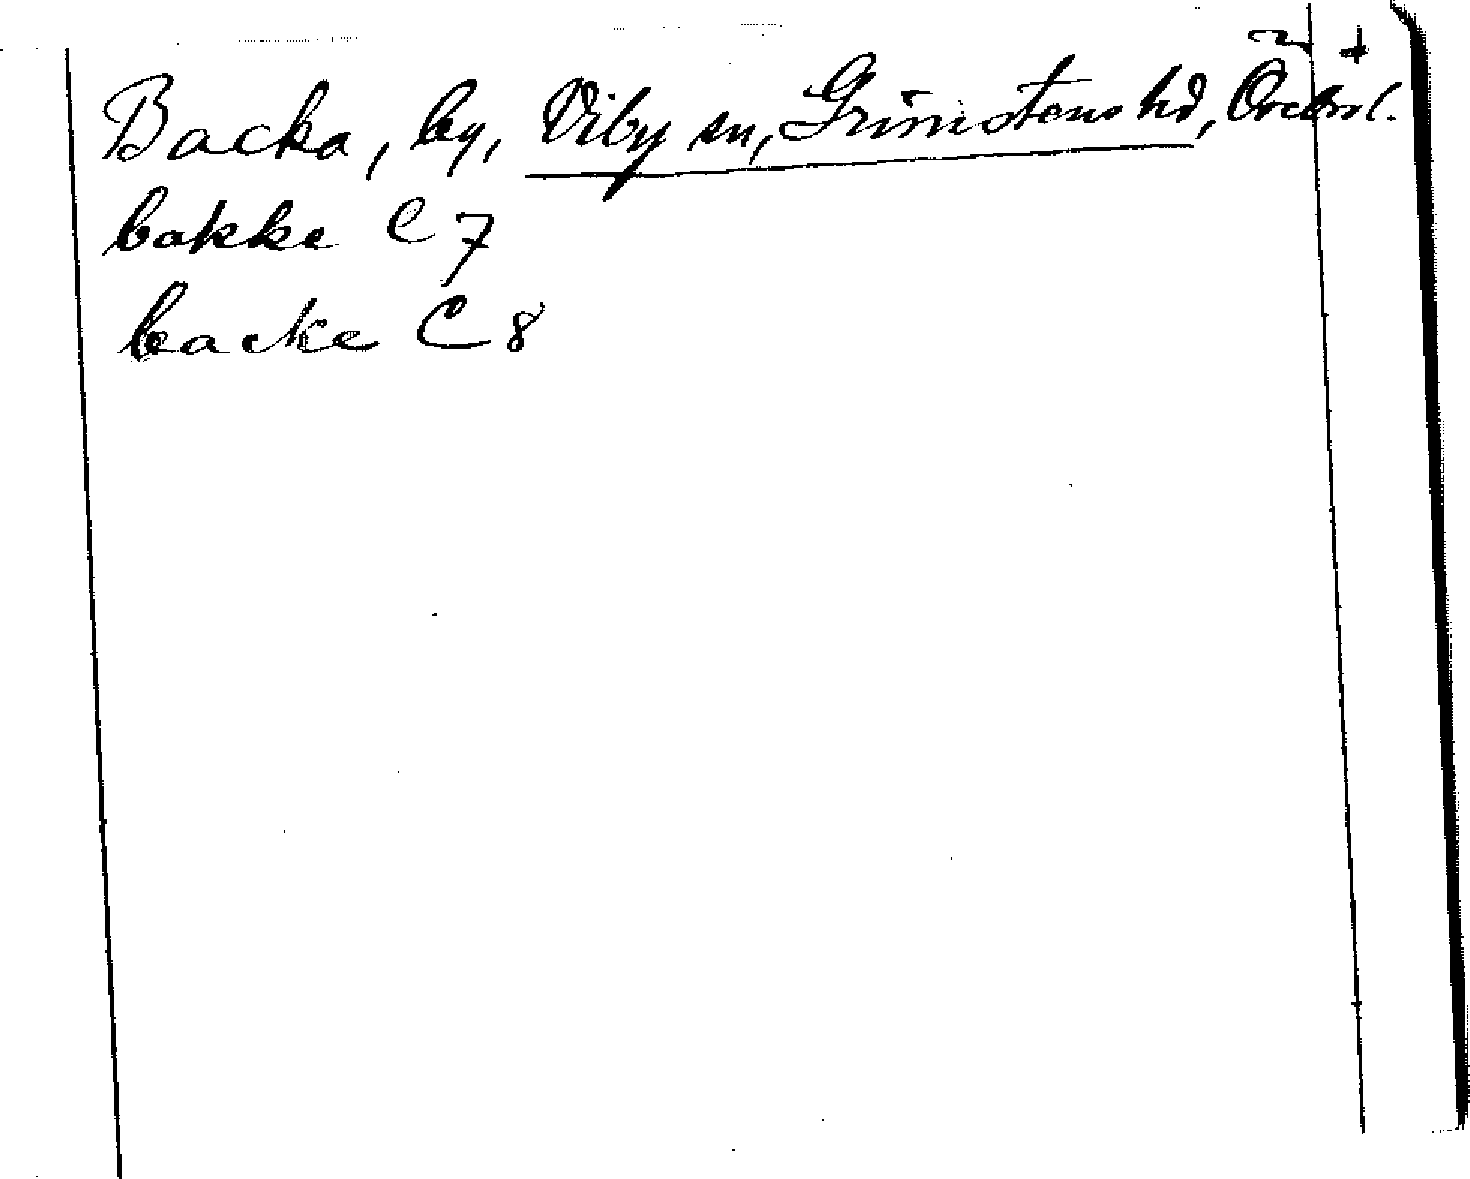 Backa, by, Viby sn, Grimstens hd, Örebro l. +
bakke C 7
backe C 8